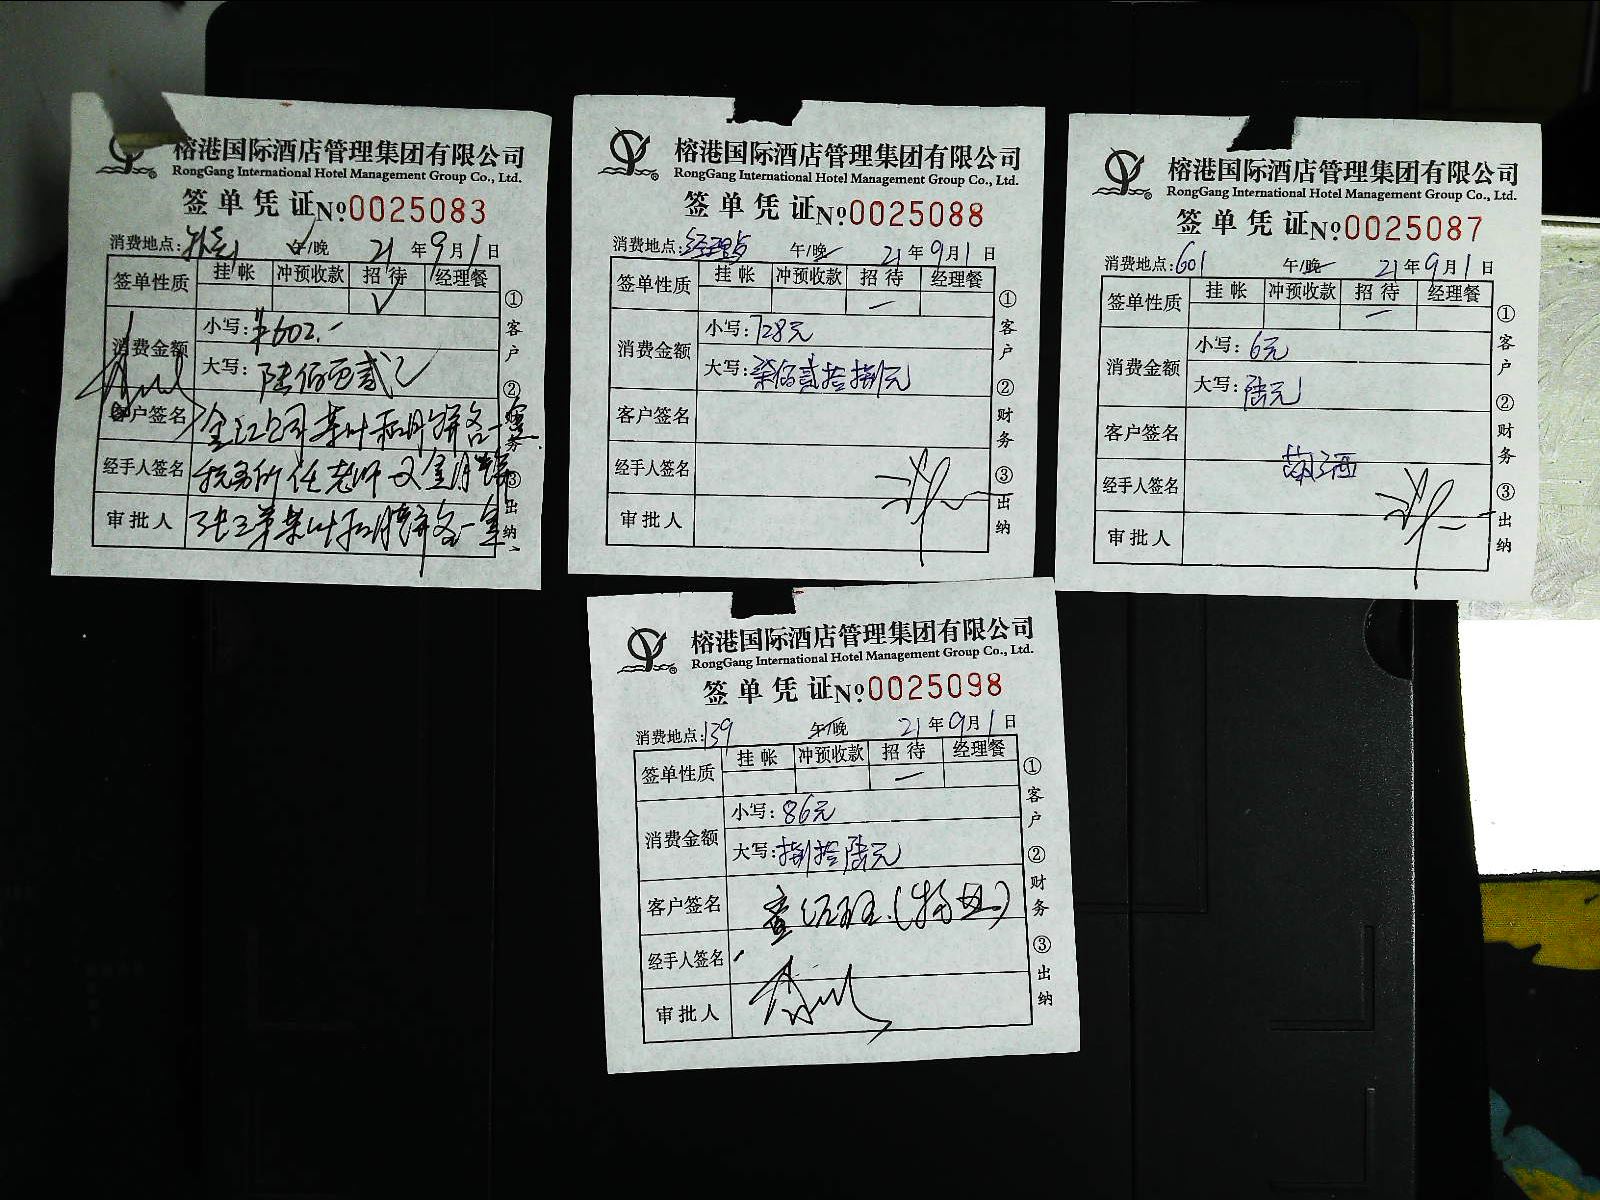 榕港国际酒店管理集团有限公司
RongGang International Hotel Management Group Co., Ltd.
签单凭证 №0025083
消费地点: 午/晚 21年9月1日
签单性质 挂帐 冲预收款 招待 经理餐
√
消费金额 小写: ¥602.-
大写: 陆佰零贰元
客户签名 金江公司茶叶和月饼各一盒
经手人签名 税务所任老师
审批人 茶叶和月饼各一盒
①客户 ②财务 ③出纳
榕港国际酒店管理集团有限公司
RongGang International Hotel Management Group Co., Ltd.
签单凭证 №0025088
消费地点: 午/晚 21年9月1日
签单性质 挂帐 冲预收款 招待 经理餐
消费金额 小写: 728元
大写: 柒佰贰拾捌元
客户签名
经手人签名
审批人
①客户 ②财务 ③出纳
榕港国际酒店管理集团有限公司
RongGang International Hotel Management Group Co., Ltd.
签单凭证 №0025087
消费地点: 601 午/晚 21年9月1日
签单性质 挂帐 冲预收款 招待 经理餐
消费金额 小写: 6元
大写: 陆元
客户签名
经手人签名
审批人
①客户 ②财务 ③出纳
榕港国际酒店管理集团有限公司
RongGang International Hotel Management Group Co., Ltd.
签单凭证 №0025098
消费地点: 139 午/晚 21年9月1日
签单性质 挂帐 冲预收款 招待 经理餐
消费金额 小写: 86元
大写: 捌拾陆元
客户签名
经手人签名
审批人
①客户 ②财务 ③出纳